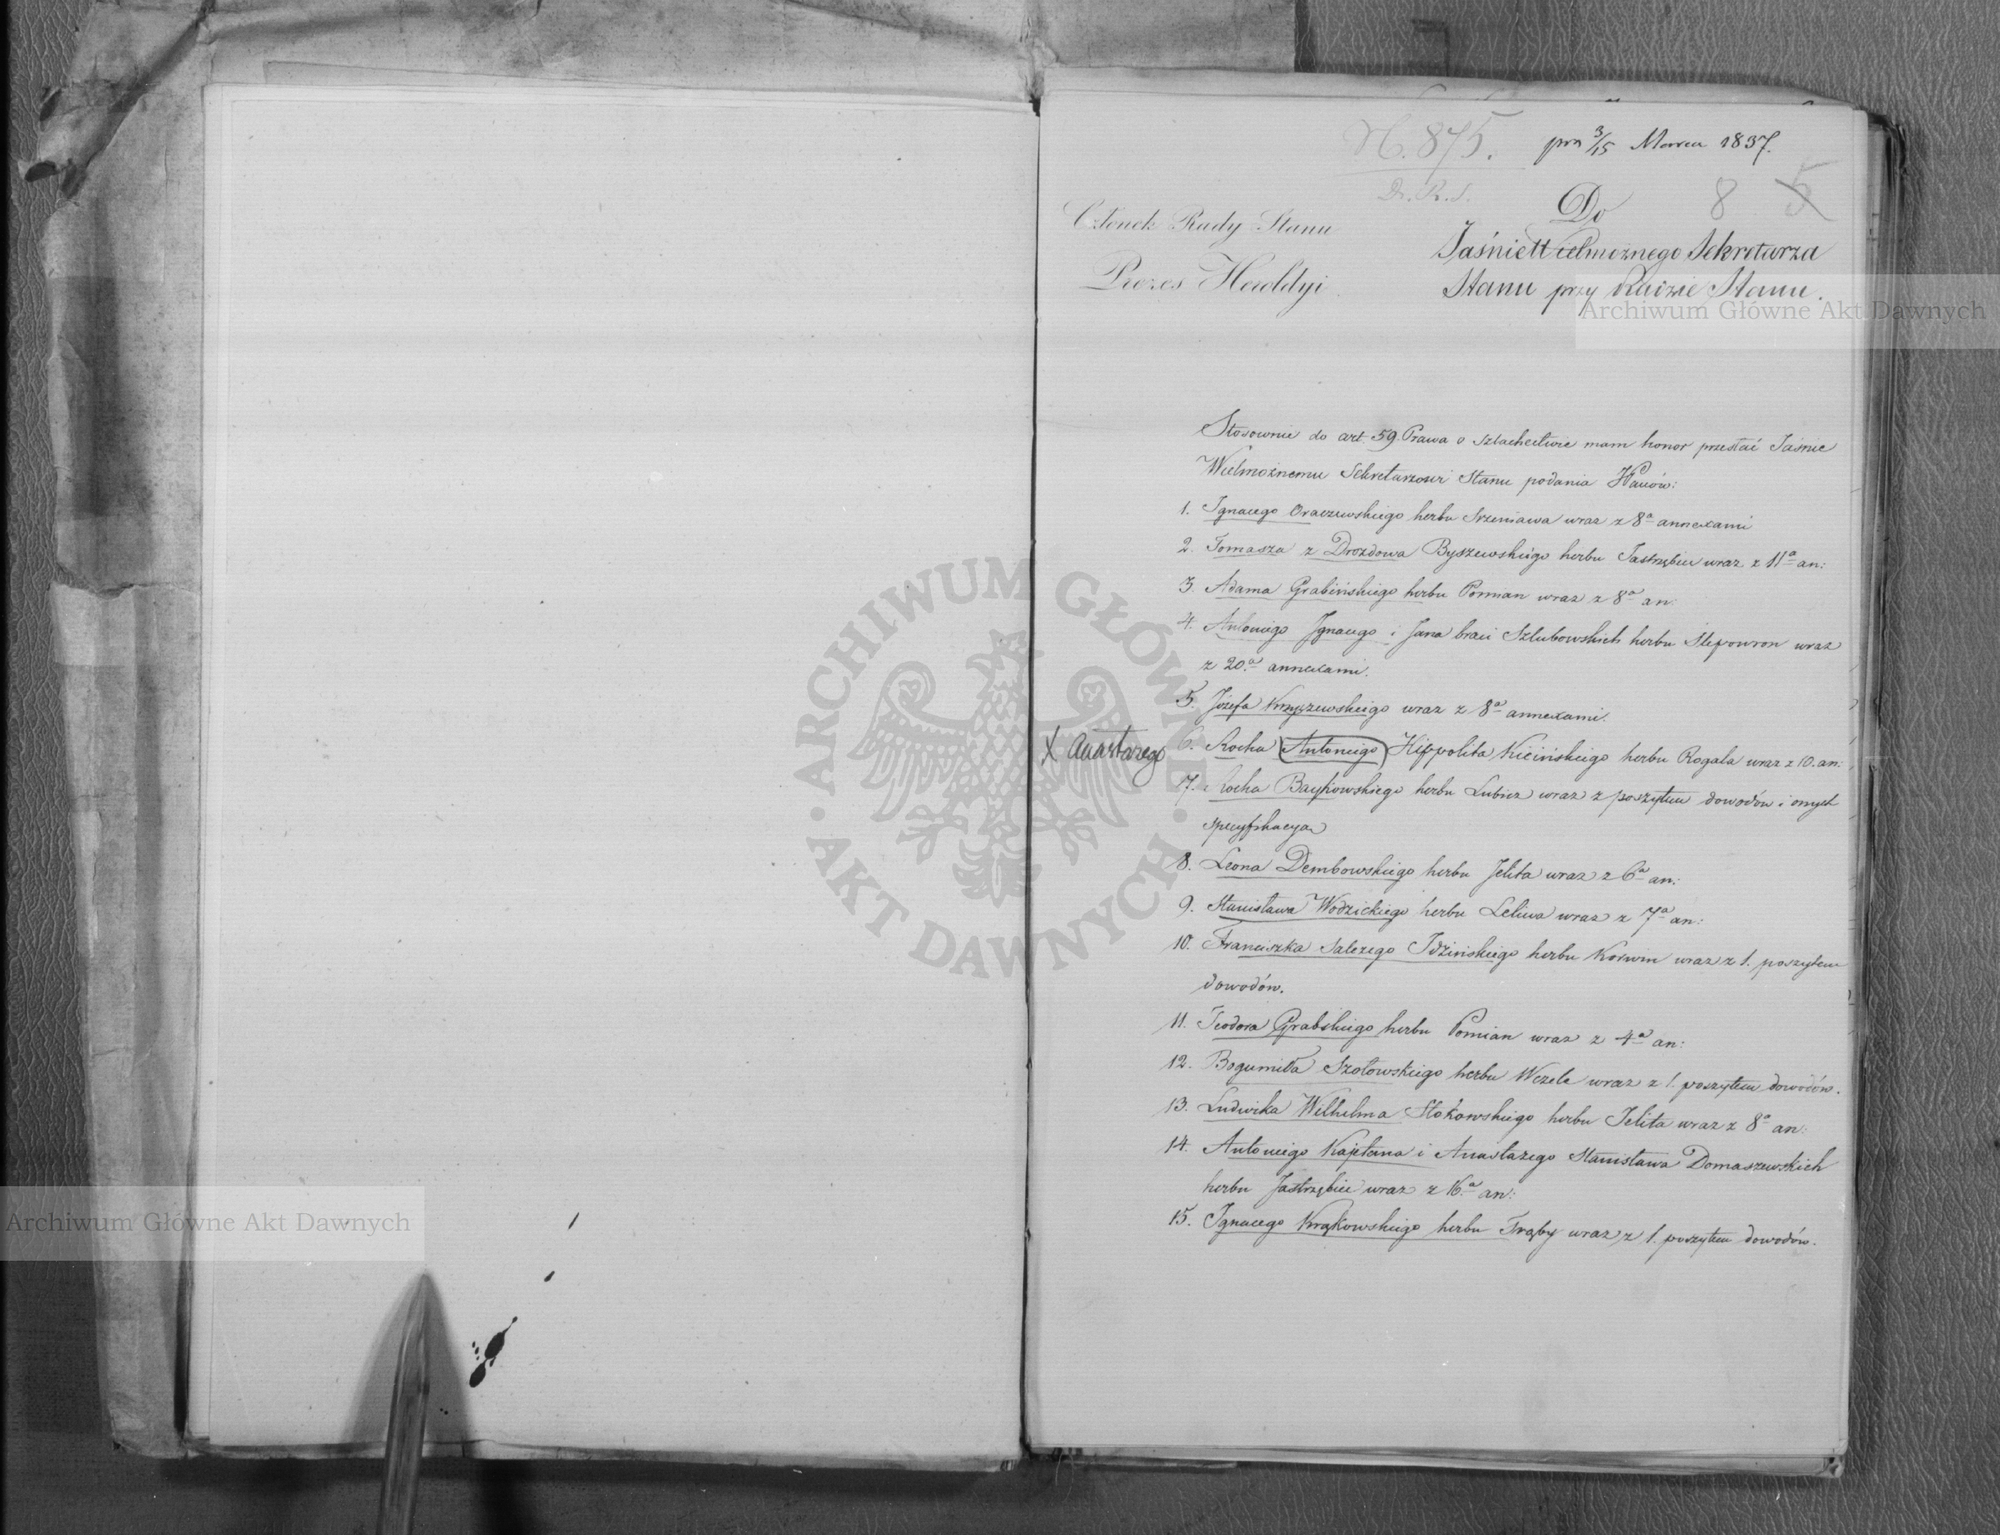 N. 875.
prn 3/15 Marca 1837.
Dr. R. S.
8 5
Członek Rady Stanu
Prezes Heroldyi
Do
JaśnieWielmożnego Sekretarza
Stanu przy Radzie Stanu.
Archiwum Główne Akt Dawnych
Stosownie do art 59 Prawa o szlachectwie mam honor przesłać Jaśnie
Wielmożnemu Sekretarzowi Stanu podania
1. Ignacego Oraczewskiego herbu Srzeniawa wraz z 8a annexami
2. Tomasza z Drozdowa Byszewskiego herbu Jastrzębiec wraz z 11a an:
3. Adama Grabińskiego herbu Pomian wraz z 8a an:
4. Antoniego Ignacego i Jana braci Szlubowskich herbu Slepowron wraz
z 20a annexami.
5. Józefa Krzyszewskiego wraz z 8a annexami.
X Anastazego
6. Rocha Antoniego Hippolita Kicińskiego herbu Rogala wraz z 10. an:
7. Rocha herbu Lubicz wraz z poszytem dowodów i onych
specyfikacya
8. Leona Dembowskiego herbu Jelita wraz z 6a an:
9. Stanisława Wodzickiego herbu Leliwa wraz z 7a an:
10. Franciszka Salezego Idzińskiego herbu Korwin wraz z 1. poszytem
dowodów.
11. Teodora Grabskiego herbu Pomian wraz z 4a an:
12. Bogumiła Szołowskiego herbu Wczele wraz z 1. poszytem dowodów.
13. Ludwika Wilhelma Stokowskiego herbu Jelita wraz z 8a an:
14. Antoniego Kajetana i Anastazego Stanisława Domaszewskich
herbu Jastrzębiec wraz z 16a an:
15. Ignacego Krąkowskiego herbu Trąby wraz z 1. poszytem dowodów.
ARCHIWUM GŁÓWNE AKT DAWNYCH
Archiwum Główne Akt Dawnych